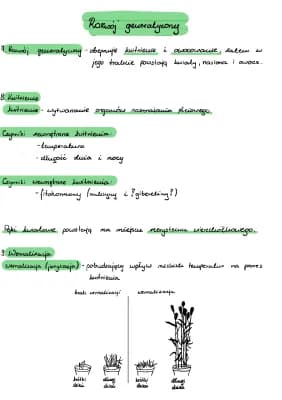 Rozwój generatywny
1. Rozwój generatywny - obejmuje kwitnienie i owocowanie, zatem w
jego trakcie powstają kwiaty, nasiona i owoce.
2. Kwitnienie
kwitnienie - wytwarzanie organów rozmnażania płciowego.
Czynniki zewnętrzne kwitnienia:
- temperatura
- długość dnia i nocy
Czynniki wewnętrzne kwitnienia:
- fitohormony (auksyny i ? gibereliny ?)
Pąki kwiatowe powstają na miejscu merystemu wierzchołkowego.
3. Wernalizacja
wernalizacja (jaryzacja) - pobudzający wpływ niskich temperatur na proces
kwitnienia
brak wernalizacji wernalizacja
krótki dzień długi dzień krótki dzień długi dzień